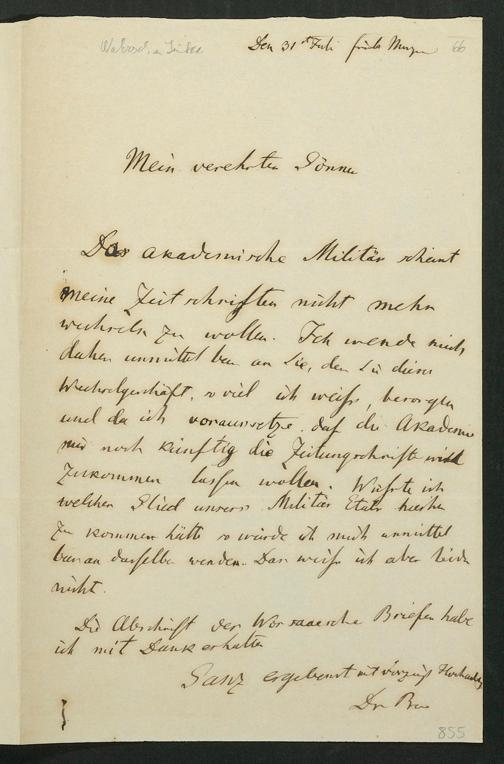 Den 31st Juli früh Morgen 66
Mein verehrter Gönner
Das akademische Militär scheint
meine Zeitschriften nicht mehr
wechseln zu wollen. Ich wende mich
daher unmittelbar an Sie, der Sie dieses
Wechselgeschäft, so viel ich weiß, besorgen
und da ich voraussetze, daß die Akademie
mir noch künftig die Zeitungsschrifte will
zukommen laßen wollen. Wüßte ich
welches Glied unsers Militär Etats hierher
zu kommen hätte so würde ich mich unmittel
bar an dasselbe wenden. Das weiß ich aber leider
nicht.
Die Abschrift der Worsaaesche Briefen habe
ich mit Dank erhalten
Ganz ergebenst mit vorzügl Hochachtg
Dr
855